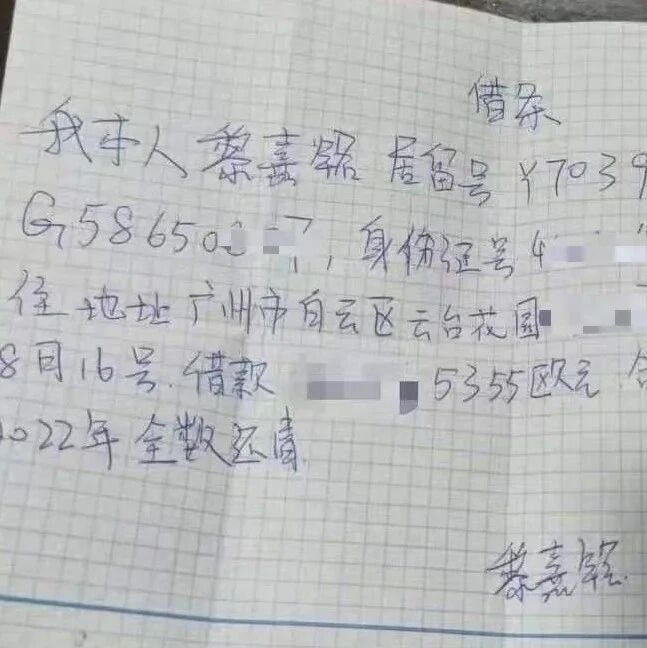 借条
我本人黎嘉 居留号 Y7039
G58650 , 身份证号 4
住地址广州市白云区云台花园
8月16号. 借款 , 5355欧元
2022年全数还清.
黎嘉